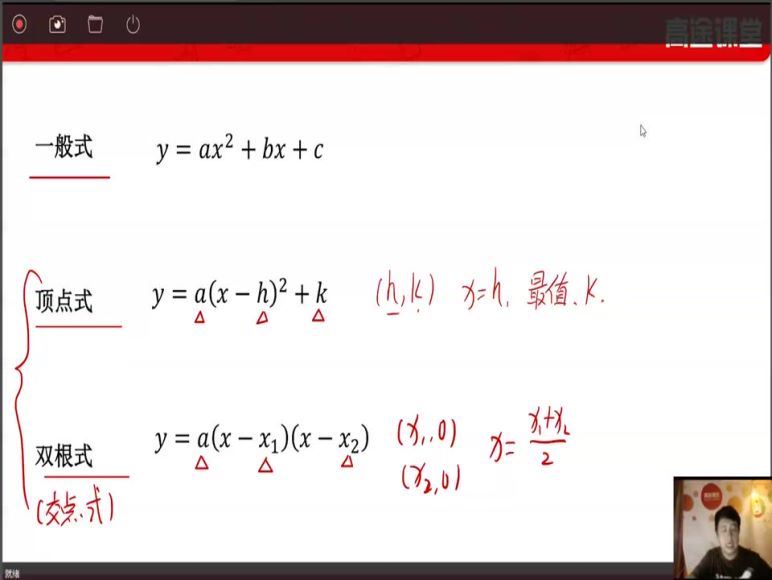 高途课堂
一般式 y = ax² + bx + c
顶点式 y = a(x − h)² + k (h,k) x=h, 最值、k.
双根式 y = a(x − x₁)(x − x₂) (x₁,0) x= x₁+x₂/2
(交点式) (x₂,0)
就绪